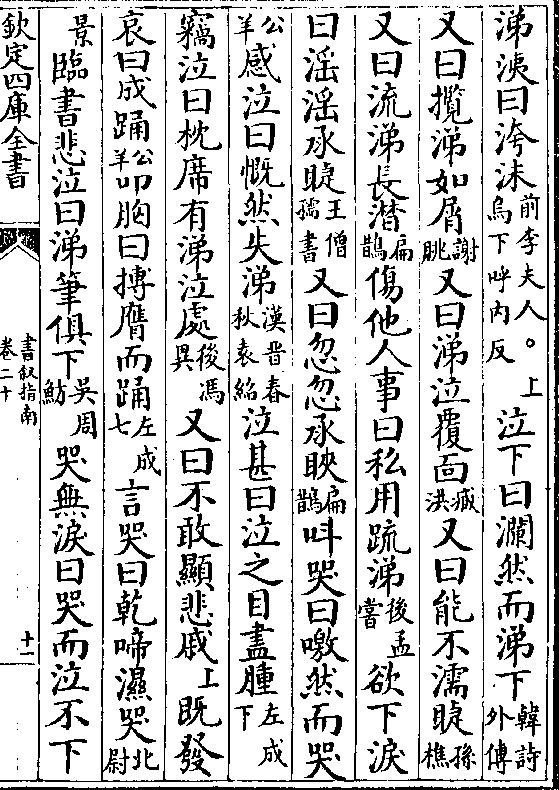 涕洟曰洿沬前李夫人。上烏下呼内反泣下曰瀾然而涕下韓詩外傳
又曰攬涕如屑謝朓又曰涕泣覆面臧洪又曰能不濡睫孫樵
又曰流涕長潸扁鵲傷他人事曰私用疏涕後孟嘗欲下淚
曰淫淫承睫王僧孺書又曰忽忽承䀹扁鵲叫哭曰噭然而哭
公羊感泣曰慨然失涕漢晋春秋袁紹泣甚曰泣之目盡腫左成下
竊泣曰枕席有涕泣處後馮異又曰不敢顯悲戚上既發
哀曰成踊公羊叩胸曰摶膺而踊左成七言哭曰乾啼濕哭北尉
景臨書悲泣曰涕筆俱下吳周魴哭無淚曰哭而泣不下
欽定四庫全書
書叙指南
卷二十
十一